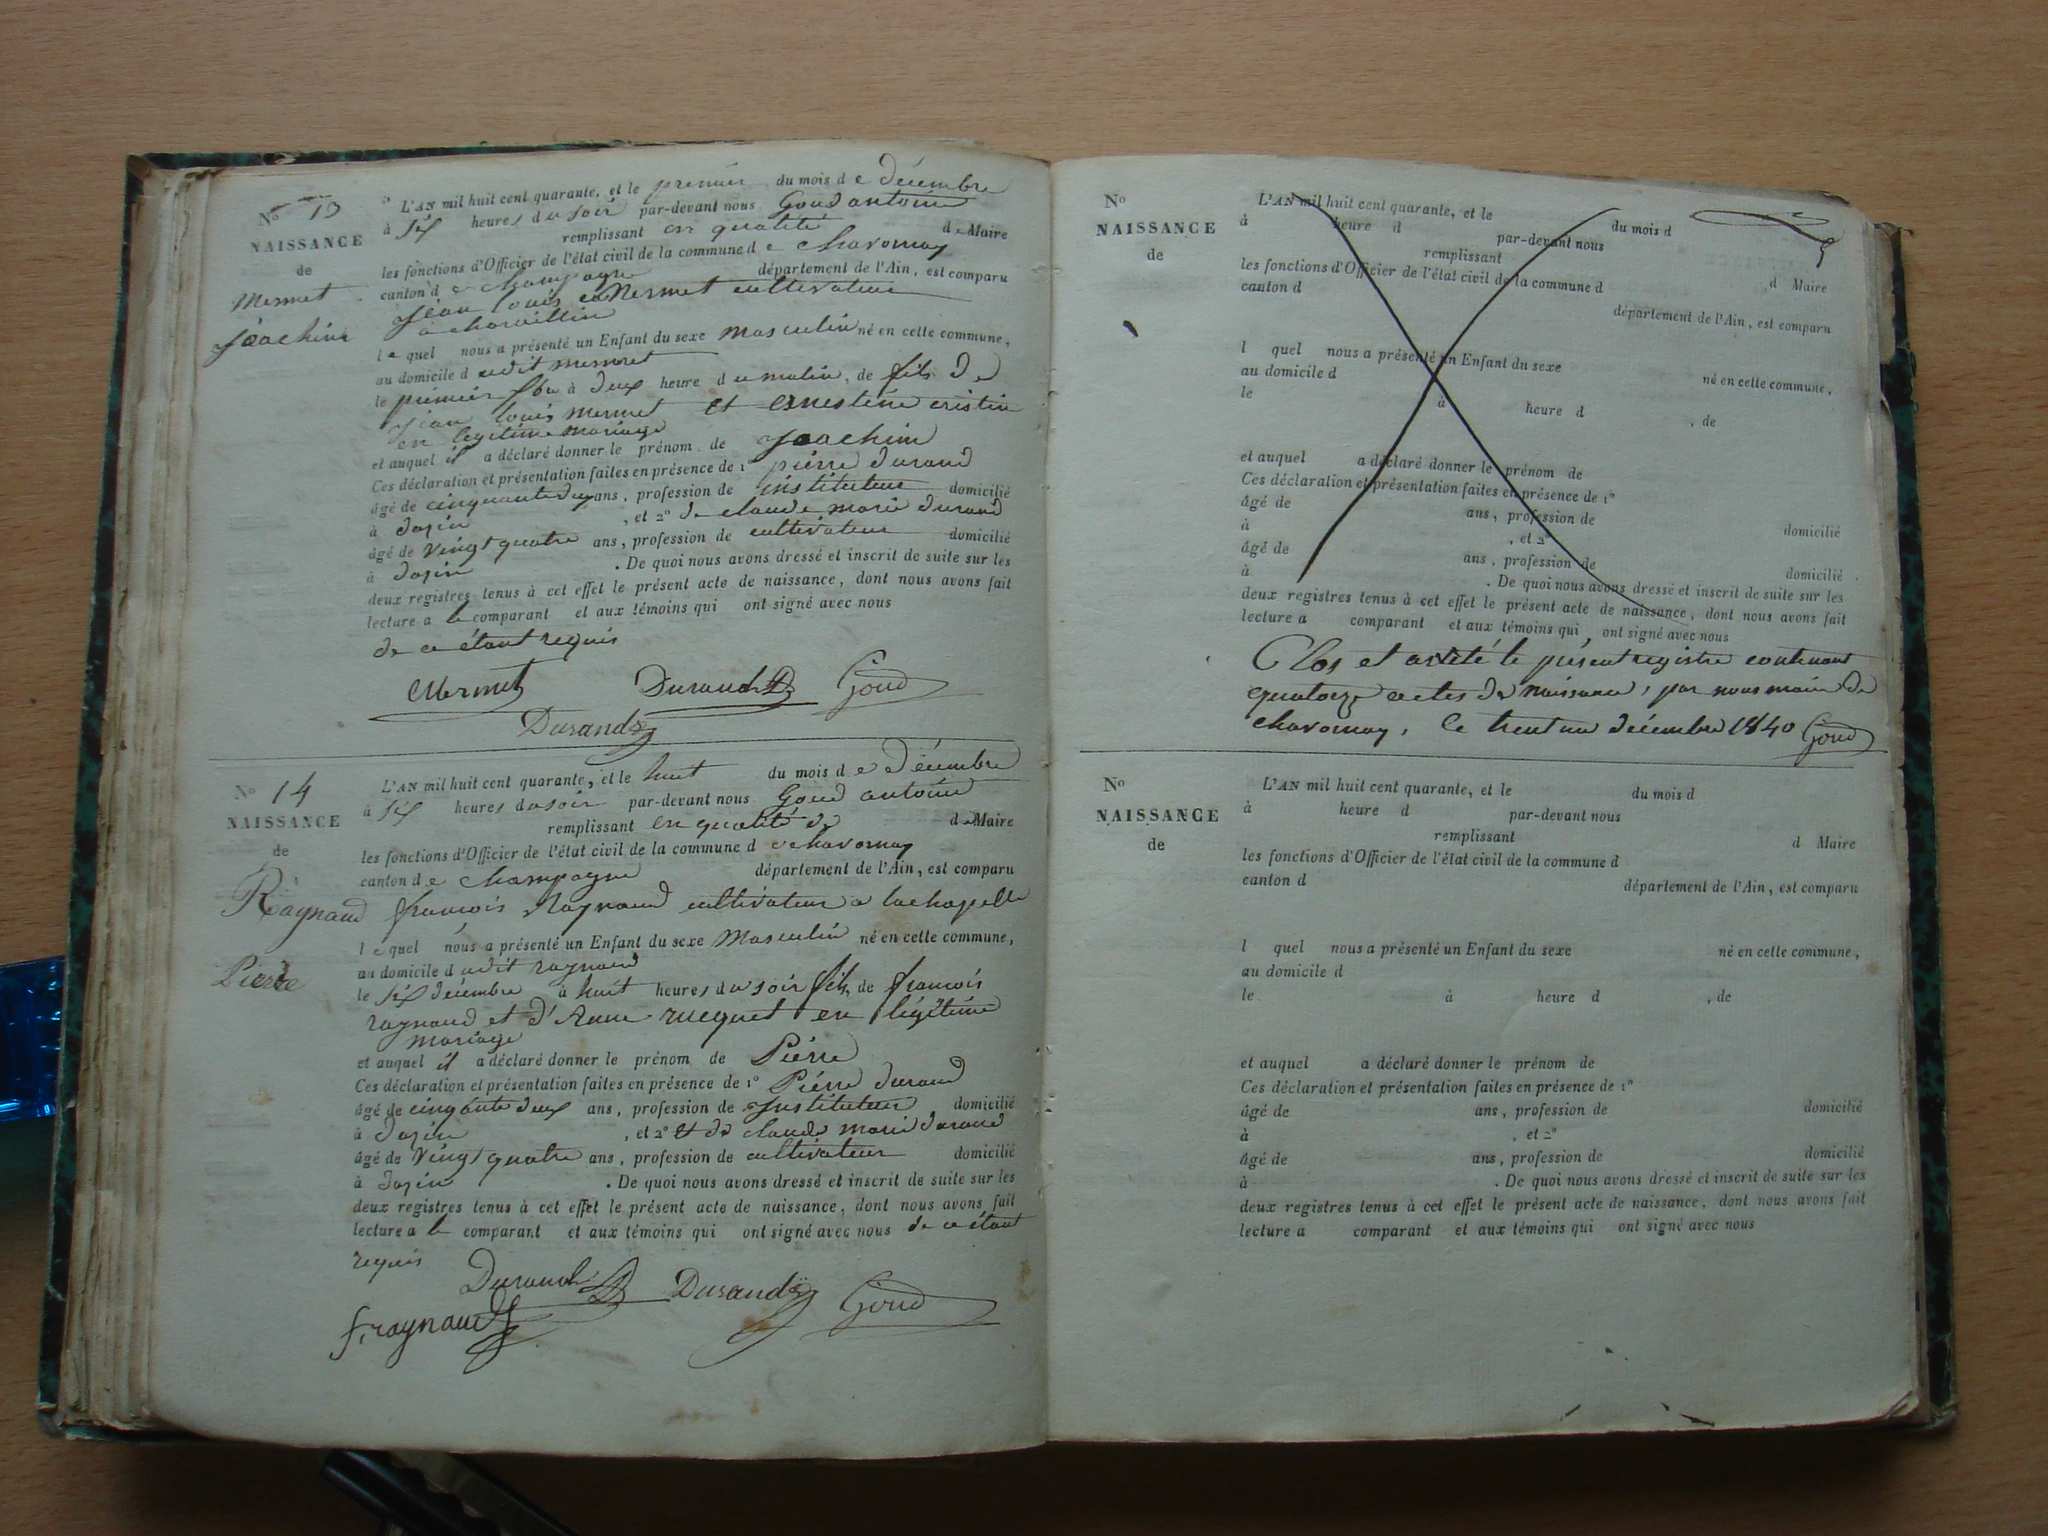 No 13
NAISSANCE
de
Mermet
Joachim
L'AN mil huit cent quarante, et le premier du mois de décembre
à six heures du soir par-devant nous Goud antoine
remplissant en qualité de Maire
les fonctions d'Officier de l'état civil de la commune de chavornay
canton de champagne département de l'Ain, est comparu
jean louis Mermet cultivateur
a
le quel nous a présenté un Enfant du sexe masculin né en cette commune,
au domicile dudit mermet
le premier à deux heure du matin, de fils de
jean louis mermet et ernestine cristin
en legitime mariage
et auquel il a déclaré donner le prénom de joachim
Ces déclaration et présentation faites en présence de 1° pierre durand
âgé de cinquante deux ans, profession de instituteur domicilié
à dazin , et 2° de claude marie durand
âgé de vingt quatre ans, profession de cultivateur domicilié
à dazin . De quoi nous avons dressé et inscrit de suite sur les
deux registres tenus à cet effet le présent acte de naissance, dont nous avons fait
lecture a le comparant et aux témoins qui ont signé avec nous
de ce étant requis
Mermet Durand Goud
Durand
No 14
NAISSANCE
de
Raynaud
Pierre
L'AN mil huit cent quarante, et le huit du mois de décembre
à six heures du soir par-devant nous Goud antoine
remplissant en qualité de de Maire
les fonctions d'Officier de l'état civil de la commune de chavornay
canton de champagne département de l'Ain, est comparu
francois Raynaud cultivateur a lachapelle
le quel nous a présenté un Enfant du sexe Masculin né en cette commune,
au domicile dudit raynaud
le six décembre à huit heures du soir fils de francois
raynaud et d'Anne rucquet en légitime
mariage
et auquel il a déclaré donner le prénom de Piérre
Ces déclaration et présentation faites en présence de 1° Piérre durand
âgé de cinqante deux ans, profession de Instituteur domicilié
à dazin , et 2° et de claude marie durand
âgé de vingt quatre ans, profession de cultivateur domicilié
à dazin . De quoi nous avons dressé et inscrit de suite sur les
deux registres tenus à cet effet le présent acte de naissance, dont nous avons fait
lecture a le comparant et aux témoins qui ont signé avec nous de ce étant
requis
Durand Durand Goud
f. raynaud
No
NAISSANCE
de
L'AN mil huit cent quarante, et le du mois d
à heure d par-devant nous
remplissant d Maire
les fonctions d'Officier de l'état civil de la commune d
canton d département de l'Ain, est comparu
l quel nous a présenté un Enfant du sexe né en cette commune,
au domicile d
le à heure d , de
et auquel a déclaré donner le prénom de
Ces déclaration et présentation faites en présence de 1°
âgé de ans, profession de domicilié
à , et 2°
âgé de ans, profession de domicilié
à . De quoi nous avons dressé et inscrit de suite sur les
deux registres tenus à cet effet le présent acte de naissance, dont nous avons fait
lecture a comparant et aux témoins qui ont signé avec nous
Clos et arrêté le présent registre contenant
quatorze actes de naissance, par nous maire de
chavornay, le trent un décembre 1840 Goud
No
NAISSANCE
de
L'AN mil huit cent quarante, et le du mois d
à heure d par-devant nous
remplissant d Maire
les fonctions d'Officier de l'état civil de la commune d
canton d département de l'Ain, est comparu
l quel nous a présenté un Enfant du sexe né en cette commune,
au domicile d
le à heure d , de
et auquel a déclaré donner le prénom de
Ces déclaration et présentation faites en présence de 1°
âgé de ans, profession de domicilié
à , et 2°
âgé de ans, profession de domicilié
à . De quoi nous avons dressé et inscrit de suite sur les
deux registres tenus à cet effet le présent acte de naissance, dont nous avons fait
lecture a comparant et aux témoins qui ont signé avec nous